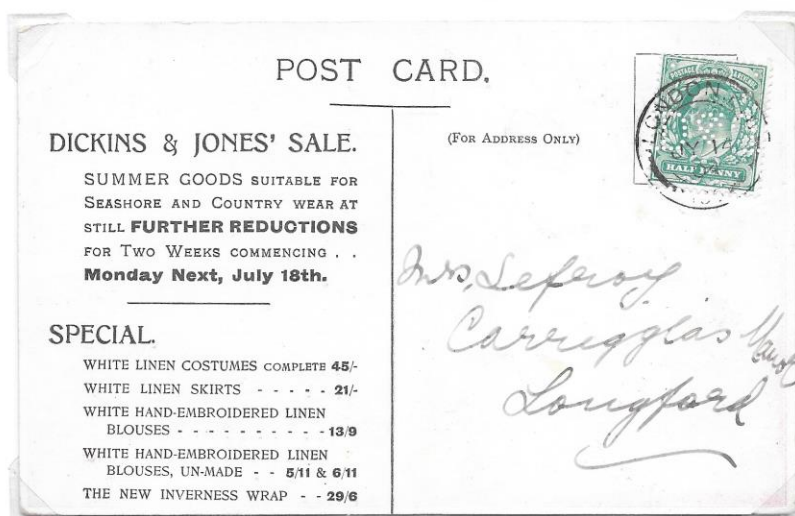 POST CARD.
DICKINS & JONES' SALE.
SUMMER GOODS SUITABLE FOR
SEASHORE AND COUNTRY WEAR AT
STILL FURTHER REDUCTIONS
FOR TWO WEEKS COMMENCING . .
Monday Next, July 18th.
SPECIAL.
WHITE LINEN COSTUMES COMPLETE 45/-
WHITE LINEN SKIRTS - - - - - 21/-
WHITE HAND-EMBROIDERED LINEN
BLOUSES - - - - - - - - - - 13/9
WHITE HAND-EMBROIDERED LINEN
BLOUSES, UN-MADE - - 5/11 & 6/11
THE NEW INVERNESS WRAP - - 29/6
(FOR ADDRESS ONLY)
POSTAGE
HALFPENNY
LONDON
JY 14
Mrs, Lefroy
Carrigglas Manor
Longford